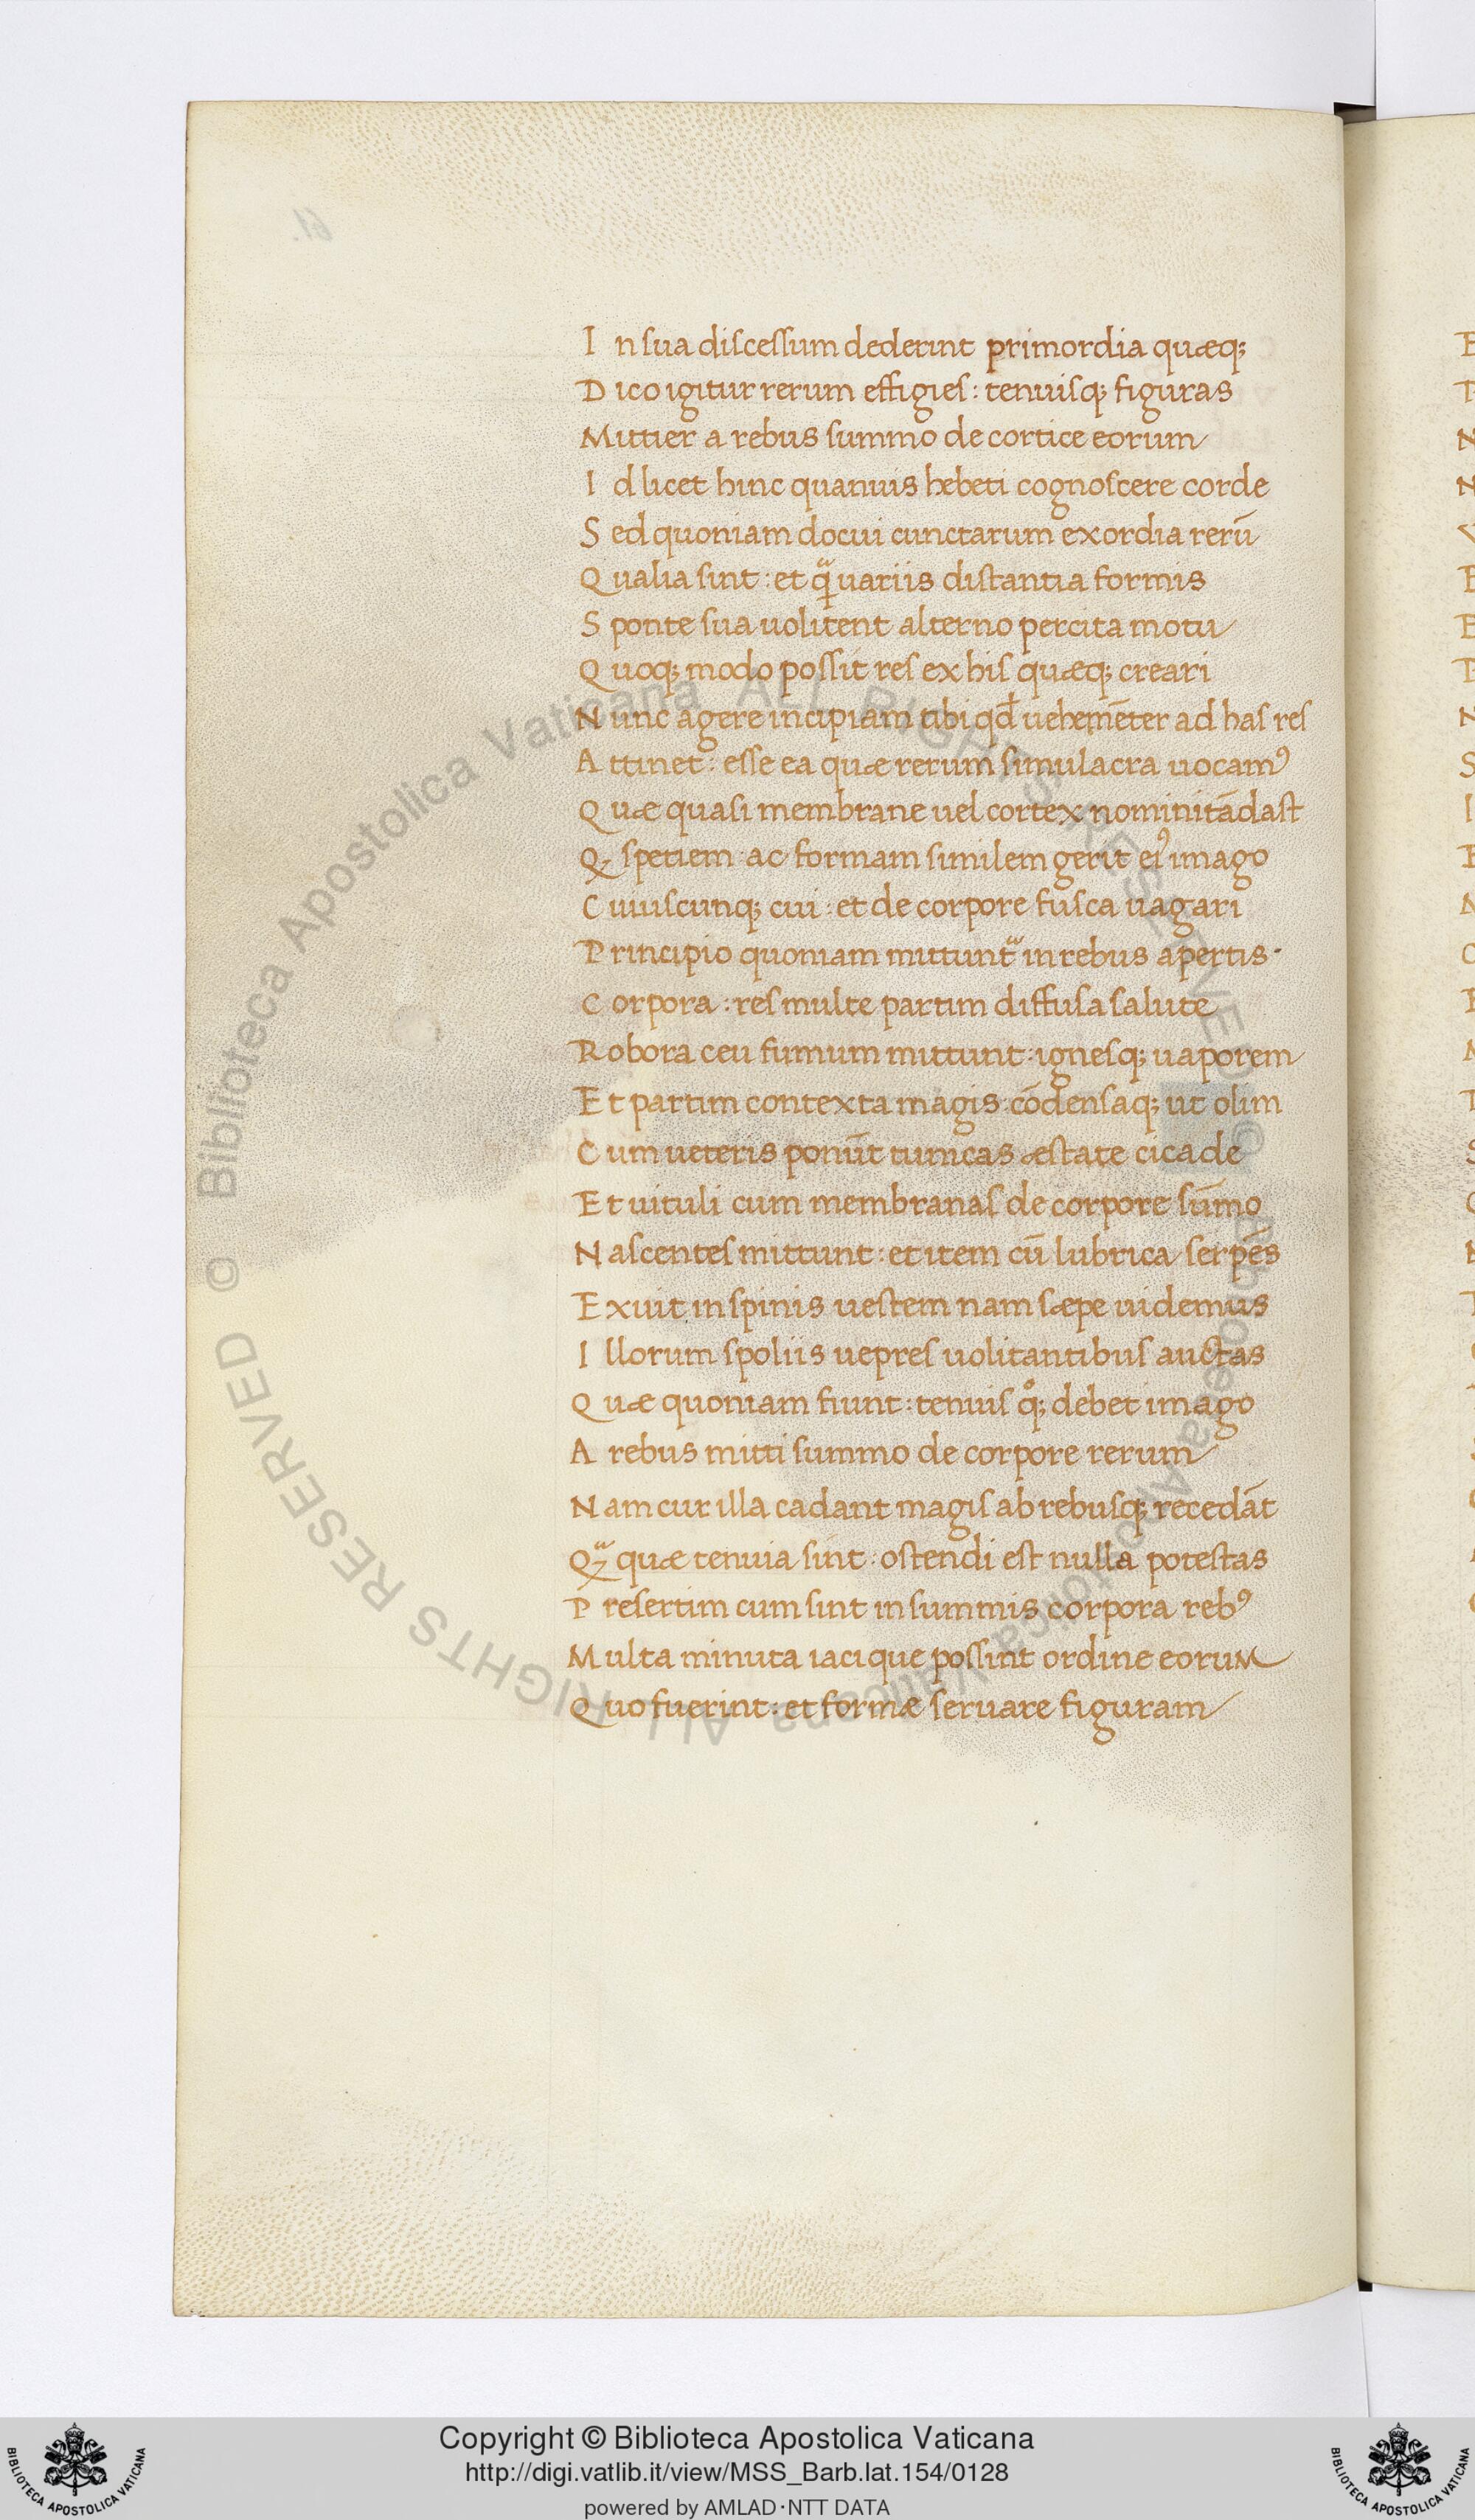 61.
I n sua discessum dederint primordia quæq;
D ico igitur rerum effigies: tenuisq; figuras
Mittier a rebus summo de cortice eorum
I d licet hinc quanuis hebeti cognoscere corde
S ed quoniam docui cunctarum exordia rerū
Q ualia sint: et qͣ uariis distantia formis
S ponte sua uolitent alterno percita motu
Q uoq; modo possit res ex his quæq; creari
N unc agere incipiam tibi qđ uehemēter ad has res
A ttinet: esse ea quæ rerum simulacra uocamꝰ
Q uæ quasi membrane uel cortex nominitādast
Qꝫ spetiem ac formam similem gerit eiꝰ imago
C uiuscunq; cui: et de corpore fusca uagari
P rincipio quoniam mittuntᷣ in rebus apertis.
C orpora: res multe partim diffusa salute
R obora ceu fumum mittunt: ignesq; uaporem
E t partim contexta magis: cōdensaq; ut olim
C um ueteris ponūt tunicas æstate cicade
E t uituli cum membranas de corpore sūmo
N ascentes mittunt: et item cū lubrica serpēs
E xuit in spinis uestem nam sæpe uidemus
I llorum spoliis uepres uolitantibus auctas
Q uæ quoniam fiunt: tenuis qͦ; debet imago
A rebus mitti summo de corpore rerum
N am cur illa cadant magis ab rebusq; recedāt
Qꝫͣ quæ tenuia sint: ostendi est nulla potestas
P resertim cum sint in summis corpora rebꝰ
M ulta minuta iaci que possint ordine eorum
Q uo fuerint: et formæ seruare figuram
© Biblioteca Apostolica Vaticana ALL RIGHTS RESERVED
© Biblioteca Apostolica Vaticana ALL RIGHTS RESERVED
Copyright © Biblioteca Apostolica Vaticana
http://digi.vatlib.it/view/MSS_Barb.lat.154/0128
powered by AMLAD·NTT DATA
BIBLIOTECA APOSTOLICA VATICANA
BIBLIOTECA APOSTOLICA VATICANA